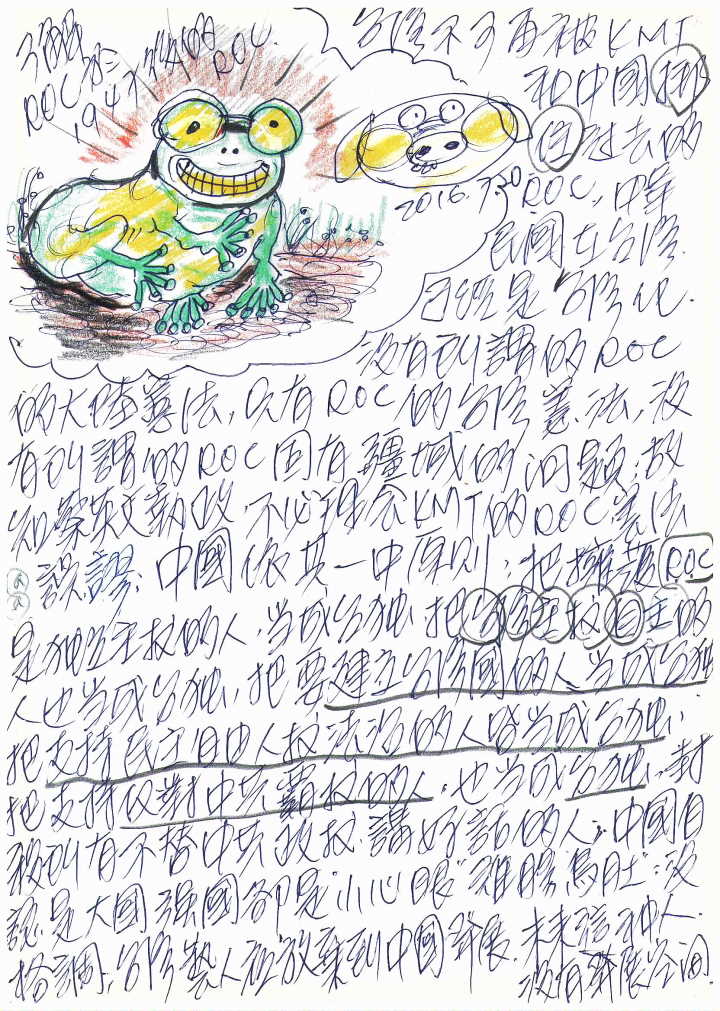 ROC於
1947年的
ROC.
台灣不可再被KMT
和中國掛
住過去的
2016.7.30
ROC,中華
民國在台灣
已經是台灣化.
沒有所謂的ROC
的大陸憲法,只有ROC的台灣憲法,沒
有所謂的ROC固有疆域的問題;故
知蔡英文執政,不必理会KMT的ROC憲法
謬;中國依其一中原則;把擁 ROC
是独立主权的人,当成台独;把台灣主权自主的
人也当成台独,把要建立台灣國的人当成台独
把支持民主自由人权法治的人皆当成台独;
把支持反對中共霸权的人,也当成台独,對
所有不替中共政权講好話的人;中國自
認是大國強國卻是"小心眼""雞腸鳥肚";沒
格調,台灣藝人 放棄到中國發展,未来
沒有發展空间.